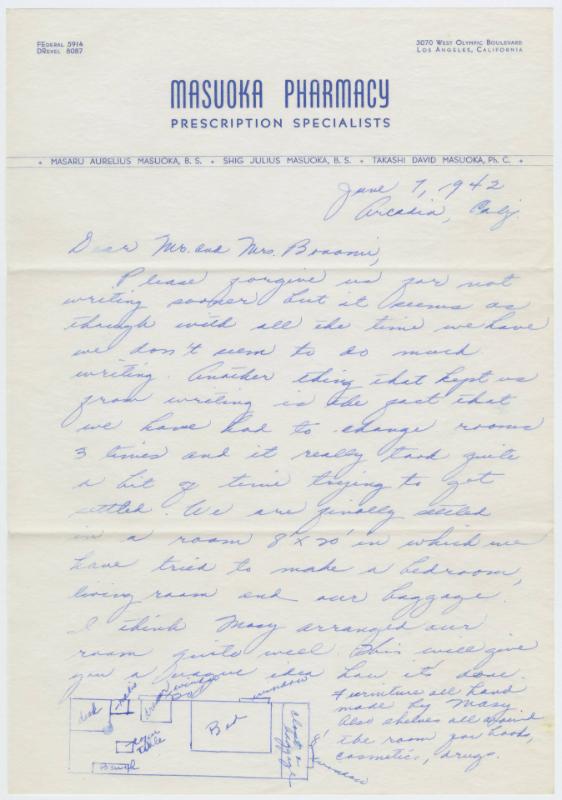 FEDERAL 5914
DREXEL 8087
3070 WEST OLYMPIC BOULEVARD
LOS ANGELES, CALIFORNIA
MASUOKA PHARMACY
PRESCRIPTION SPECIALISTS
• MASARU AURELIUS MASUOKA, B. S. • SHIG JULIUS MASUOKA, B. S. • TAKASHI DAVID MASUOKA, Ph. C. •
June 7, 1942
Arcadia, Calif.
Dear Mr. and Mrs. Bonomi,
Please forgive us for not
writing sooner but it seems as
though with all the time we have
we don't seem to do much
writing. Another thing that kept us
from writing is the fact that
we have had to change rooms
3 times and it really took quite
a bit of time trying to get
settled. We are finally settled
in a room 8' x 20' in which we
have tried to make a bedroom,
living room and our baggage.
I think Masy arranged our
room quite well. This will give
you a vague idea how it's done.
Furniture all hand
made by Masy.
Also shelves all around
the room for books,
cosmetics, drugs.
desk
table
window
window
Bed
closet &
baggage
8'
window
table
Bench